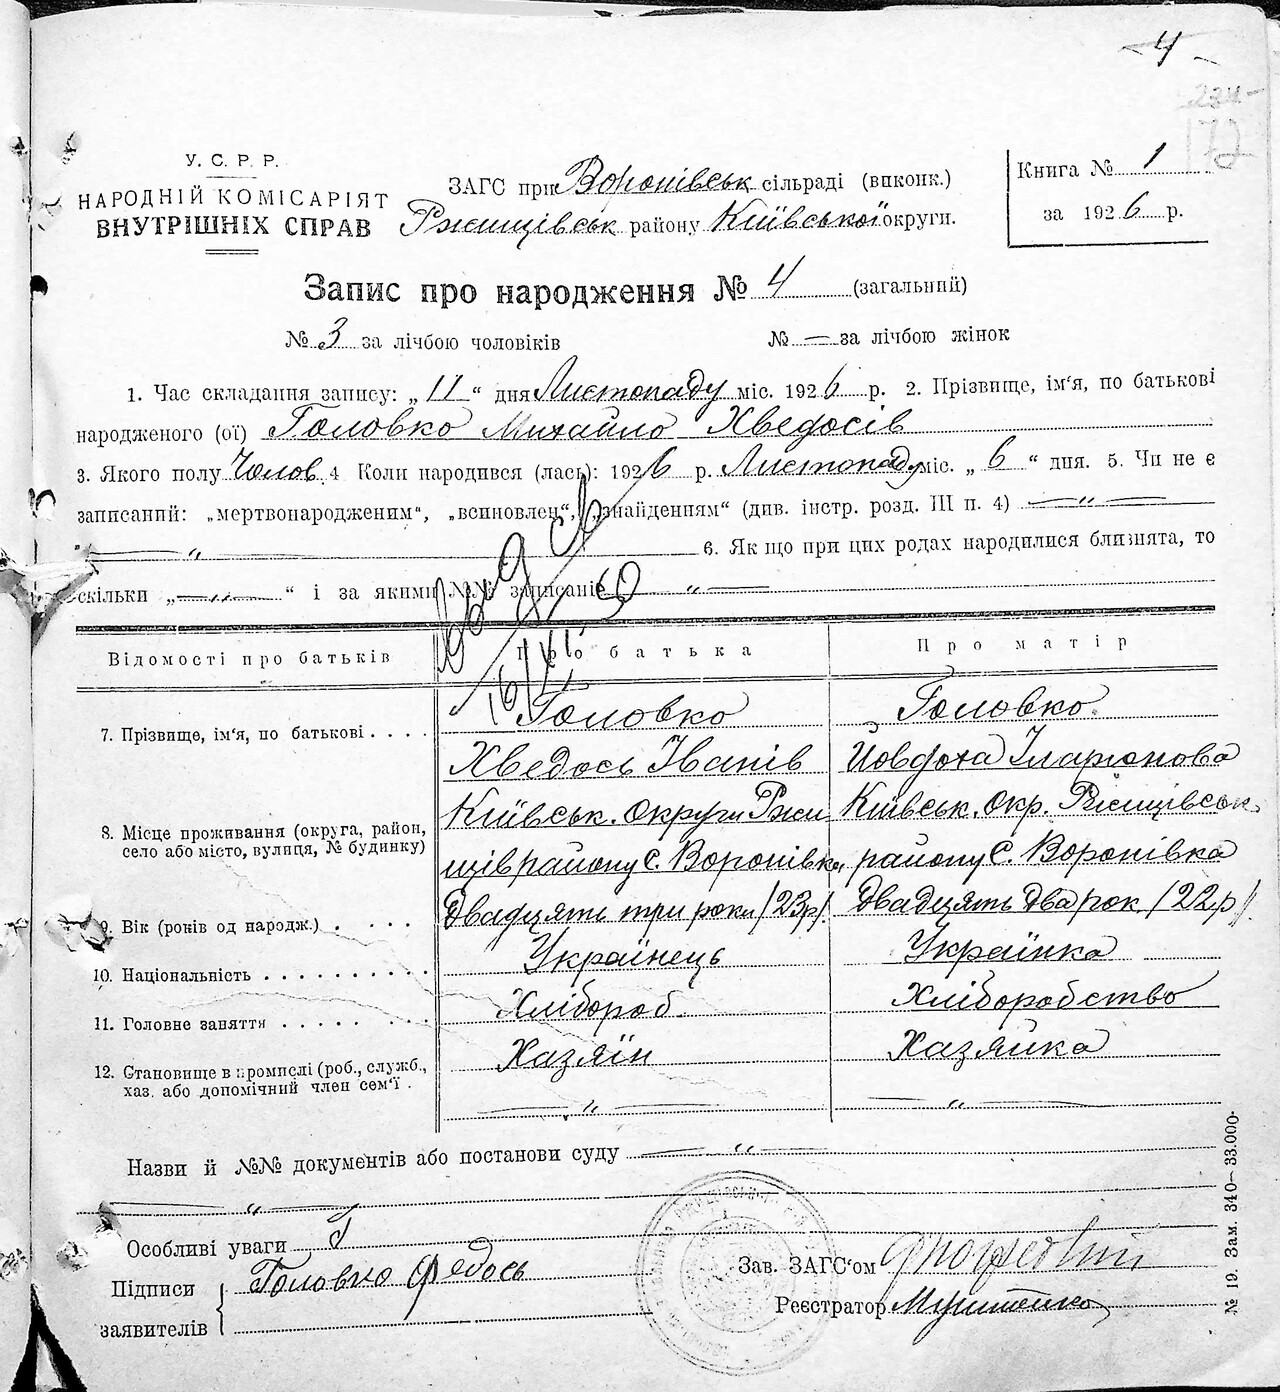 — 4 —
234-
172
У. С. Р. Р.
НАРОДНІЙ КОМІСАРІЯТ
ВНУТРІШНІХ СПРАВ
ЗАГС при Воронівськ сільраді (виконк.)
Ржищівськ району Київської округи.
Книга № 1
за 1926 р.
Запис про народження № 4 (загальний)
№ 3 за лічбою чоловіків № — за лічбою жінок
1. Час складання запису: „ 11 “ дня Листопаду міс. 1926 р. 2. Прізвище, ім'я, по батькові
народженого (ої) Головко Михайло Хведосів
3. Якого полу Чолов 4 Коли народився (лась): 1926 р. Листопаду міс. „ 6 “ дня. 5. Чи не є
записаний: „мертвонародженим“, „всиновлен“, „знайденням“ (див. інстр. розд. III п. 4) — „ —
— „ 6. Як що при цих родах народилися близнята, то
скільки „ — „ — “ і за якими №№ записані — „ —
Відомості про батьків Про батька Про матір
7. Прізвище, ім'я, по батькові . . . . Головко Головко
Хведось Іванів Йовдоха Іларіонова
8. Місце проживання (округа, район, Київськ. округи Ржи Київськ. Окр. Ржищівськ.
село або місто, вулиця, № будинку) щів району С. Воронівка, району С. Воронівка
9. Вік (років од народж.) . . . . Двадцять три роки /23р/. Двадцять два рок. /22р/.
10. Національність . . . . . . . . . . Українець Українка
11. Головне заняття . . . . . . . . Хлібороб. Хліборобство
12. Становище в промислі (роб., служб., Хазяїн Хазяйка
хаз. або допомічний член сем'ї . — „ — — „ —
Назви й №№ документів або постанови суду — „ —
— „ —
Особливі уваги
Підписи Головко Федось
заявителів
Зав. ЗАГС'ом
Реєстратор
№ 19. Зам. 340—33.000.